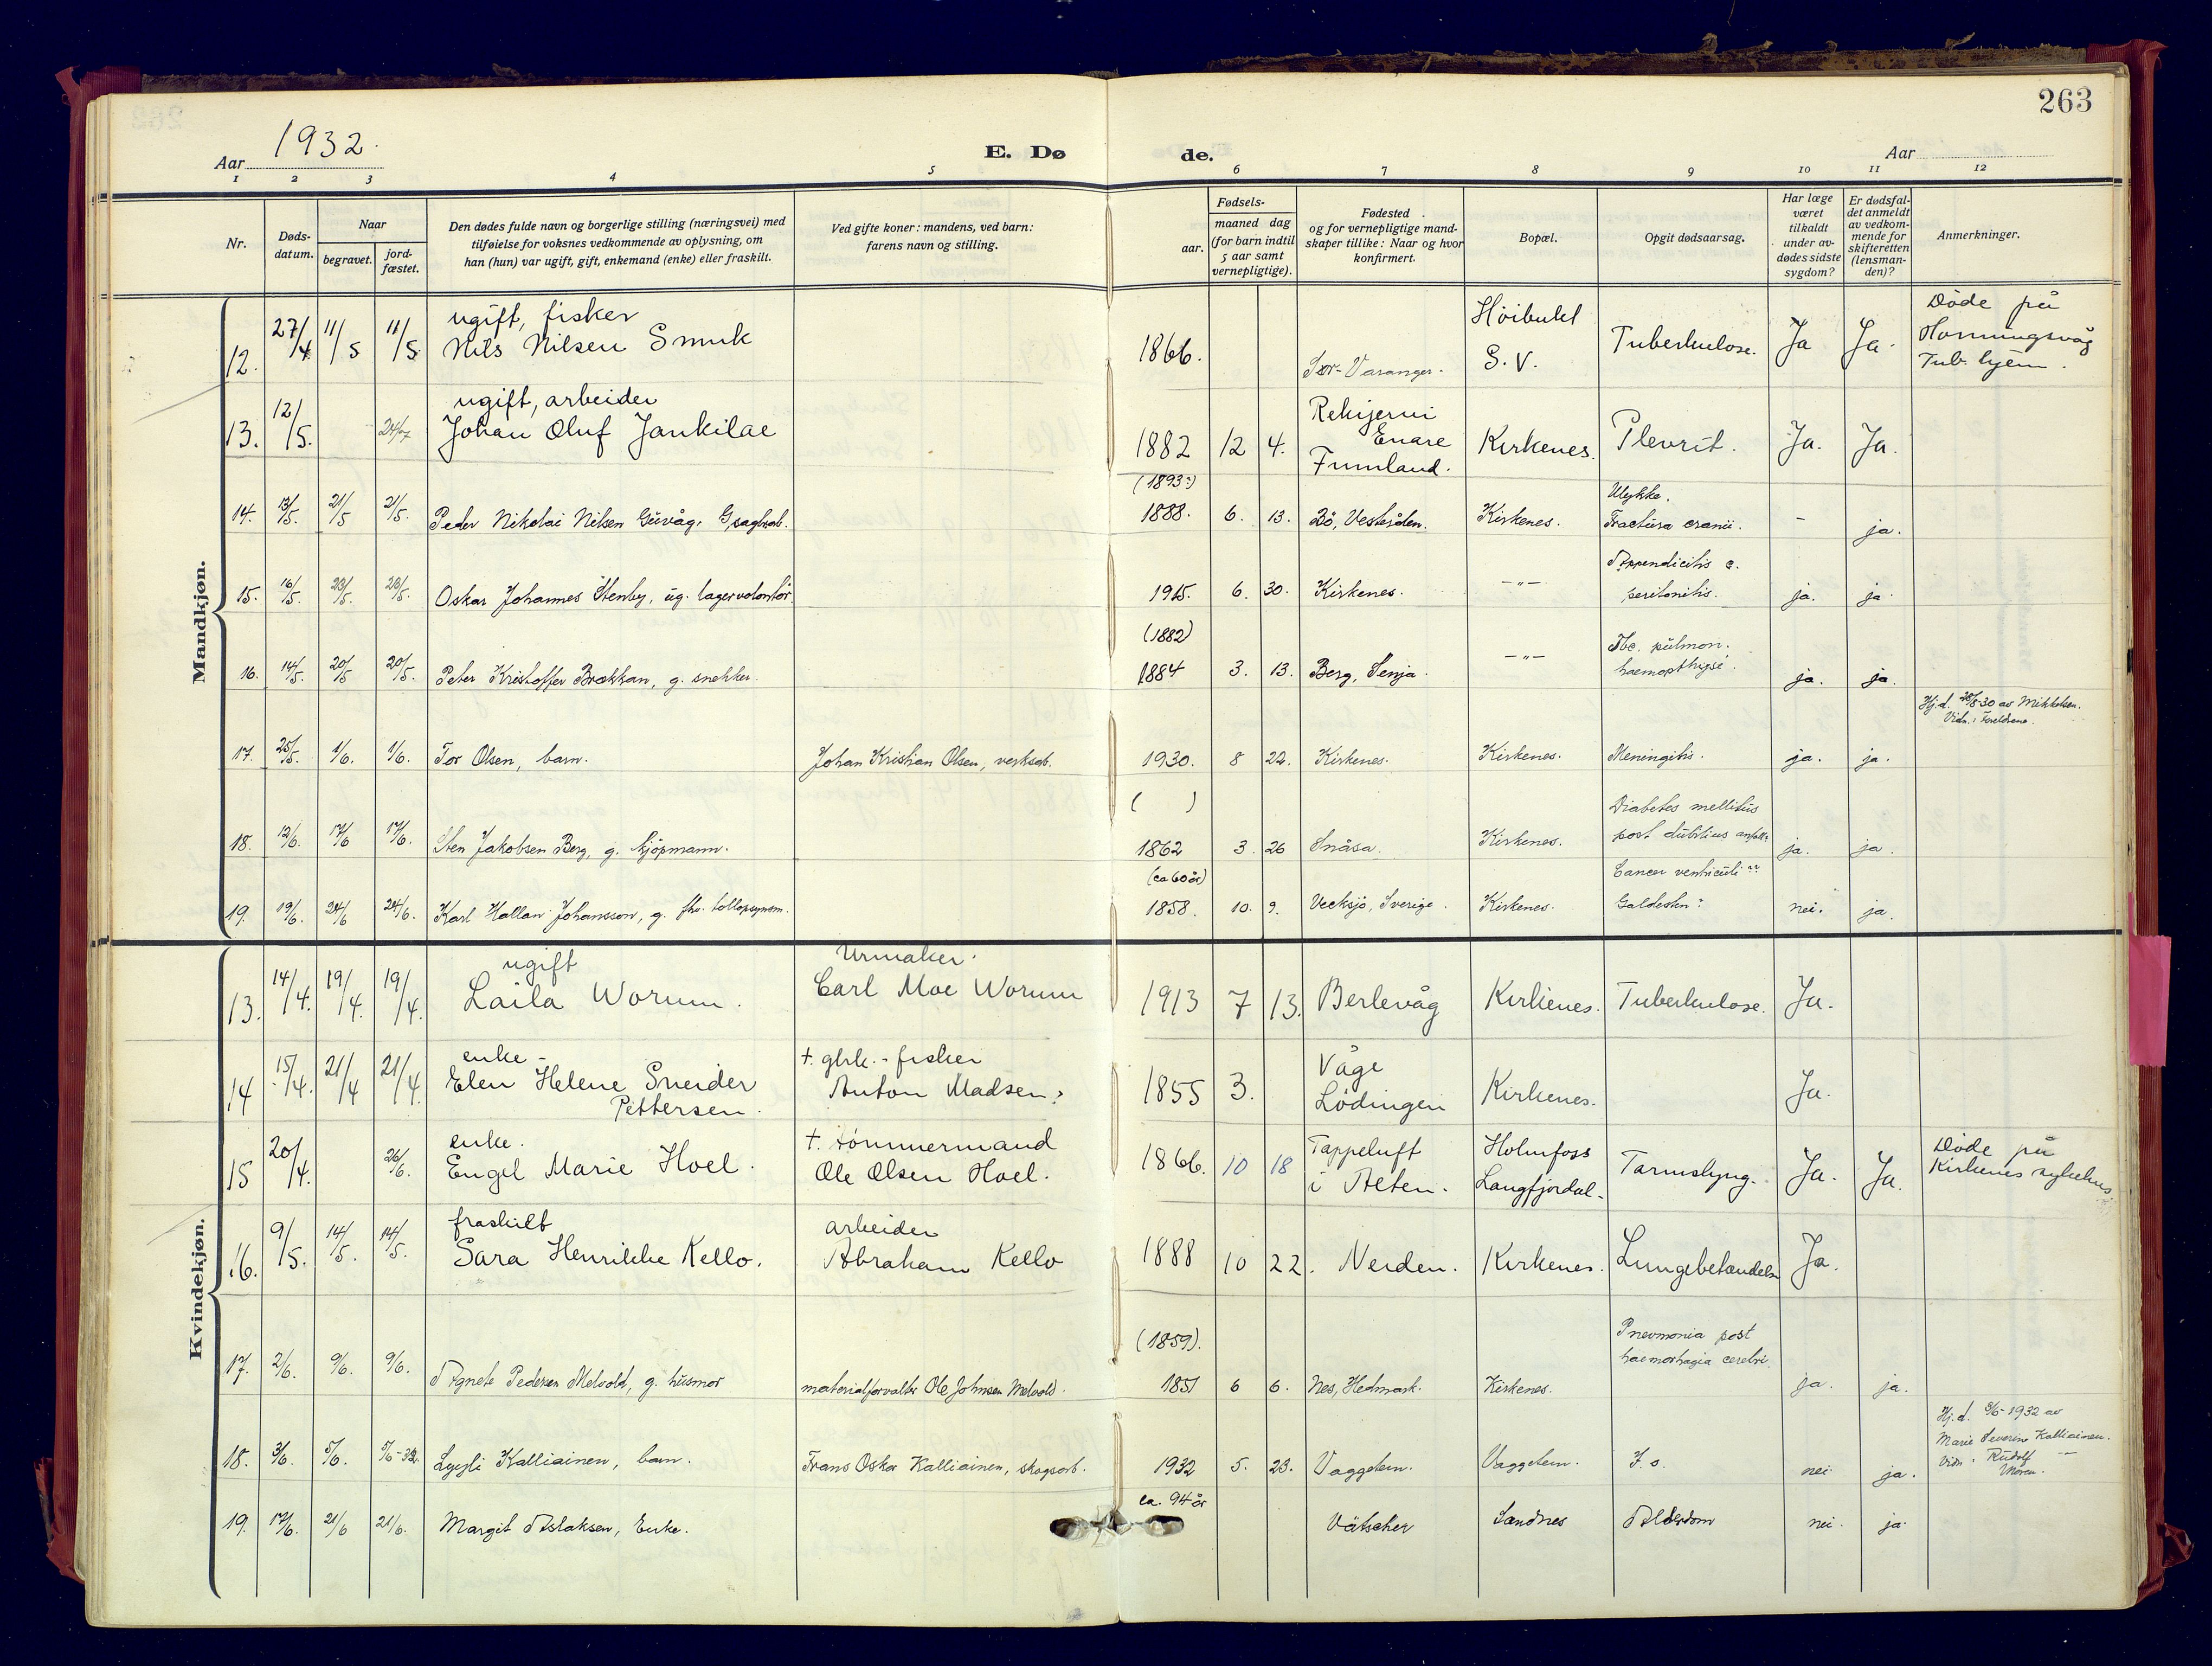 263
Aar 1932.
E. Døde.
Aar
1 2 3 4 5 6 7 8 9 10 11 12
Nr.
Døds-
datum.
Naar
begravet.
jord-
fæstet.
Den dødes fulde navn og borgerlige stilling (næringsvei) med
tilføielse for voksnes vedkommende av oplysning, om
han (hun) var ugift, gift, enkemand (enke) eller fraskilt.
Ved gifte koner: mandens, ved barn:
farens navn og stilling.
Fødsels-
aar.
maaned dag
(for barn indtil
5 aar samt
vernepligtige).
Fødested
og for vernepligtige mand-
skaper tillike: Naar og hvor
konfirmert.
Bopæl.
Opgit dødsaarsag.
Har læge
været
tilkaldt
under av-
dødes sidste
sygdom?
Er dødsfal-
det anmeldt
av vedkom-
mende for
skifteretten
(lensman-
den)?
Anmerkninger.
Mandkjøn.
ugift, fisker Høibukt Døde på
12. 27/4 11/5 11/5 Nils Nilsen Smuk 1866. Sør-Varanger. S. V. Tuberkulose. Ja Ja. Honningsvåg
Tub. hjem.
ugift, arbeider Rekijervi
13. 12/5. 24/7 Johan Oluf Jankilae 1882 12 4. Enare Kirkenes. Plevrit. Ja. Ja.
Finnland.
(1893?) Ulykke.
14. 13/5. 21/5 21/5. Peder Nikolai Nilsen Guvåg, G, sagbrab. 1888. 6. 13. Bö, Vesterålen. Kirkenes. Fractura cranii. - ja.
Appendicitis c.
15. 16/5. 23/5. 23/5. Oskar Johannes Stenby, ug. lagervolontör. 1915. 6. 30. Kirkenes. -"- peritonitis. ja. ja.
(1882) Tbc. pulmon.
16. 14/5. 20/5 20/5. Peter Kristoffer Brækkan, g. snekker. 1884 3. 13. Berg, Senja. -"- haemopthysi. ja. ja.
Hj.d. 28/8-30 av Mikkelsen.
Vidn.: Foreldrene.
17. 25/5. 1/6. 1/6. Tor Olsen, barn. Johan Kristian Olsen, verksarb. 1930. 8 22. Kirkenes. Kirkenes. Meningitis. ja. ja.
( ) Diabetes mellitus
post
18. 12/6. 17/6 17/6. Sten Jakobsen Berg, g. kjöpmann. 1862 3. 26 Snåsa. Kirkenes. ja. ja.
(ca 60 år) Cancer ventriculi ??
19. 19/6. 24/6 24/6. Karl Hallan Johansson, g. fhv. tollopsynsm. 1858. 10. 9. Vecksjö, Sverige. Kirkenes. Galdesten? nei. ja.
Kvindekjøn.
ugift Urmaker.
13. 14/4. 19/4. 19/4. Laila Worum. Carl Moe Worum 1913 7 13. Berlevåg Kirkenes. Tuberkulose. Ja.
enke - + gbrk. - fisker Våge
14 15/4. 21/4 21/4. Elen Helene Sneider Anton Madsen? 1855 3. Lödingen Kirkenes. Ja.
Pettersen.
enke. + tömmermand Tappeluft Holmfoss Døde på
15 20/4. 26/6. Engel Marie Hoel. Ole Olsen Hoel. 1866. 10 18 i Alten. Langfjordal. Tarmslyng. Ja. Ja. Kirkenes sykehus.
fraskilt arbeider
16. 9/5. 14/5. 14/5. Sara Henrikke Kello. Abraham Kello 1888 10 22. Neiden. Kirkenes. Lungebetændelse Ja.
(1859). Pnevmonia post
haemorhagia cerebri.
17. 2/6. 9/6. 9/6. Agnete Pedersen Melvold, g. husmor materialforvalter Ole Johnsen Melvold. 1851 6 6. Nes, Hedmark. Kirkenes. ja. ja.
Hj.d. 3/6-1932 av
Marie Severine Kalliainen.
18. 3/6. 5/6. 5/6-32. Lyyli Kalliainen, barn. Frans Oskar Kalliainen, skogsarb. 1932 5. 23. Vaggetem. Vaggetem. nei ja. Vidn: Rudolf -"-
Moren.
ca. 94 år
19. 17/6. 21/6 21/6. Margit Aslaksen, Enke. Vätscher Sandnes Alderdom nei. ja.